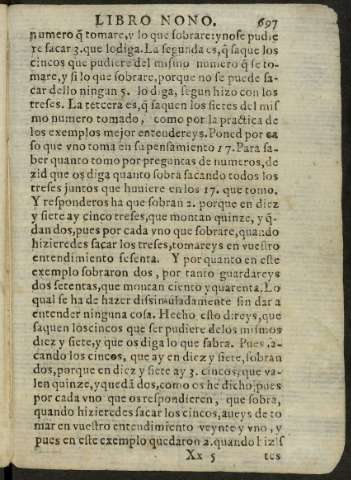 LIBRO NONO. 697
numero q̃ tomare, y lo que sobrare: y no se pudie
re sacar 3. que lo diga. La segunda es, q̃ saque los
cincos que pudiere del mismo numero q̃ se to-
mare, y si lo que sobrare, porque no se puede sa-
car dello ningun 5. lo diga, segun hizo con los
treses. La tercera es, q̃ saquen los sietes del mis
mo numero tomado, como por la practica de
los exemplos mejor entendereys. Poned por ca
so que vno toma en su pensamiento 17. Para sa-
ber quanto tomo por preguntas de numeros, de
zid que os diga quanto sobra sacando todos los
treses juntos que huuiere en los 17. que tomo.
Y responderos ha que sobran 2. porque en diez
y siete ay cinco treses, que montan quinze, y q̃-
dan dos, pues por cada vno que sobrare, quando
hizieredes sacar los treses, tomareys en vuestro
entendimiento sesenta. Y por quanto en este
exemplo sobraron dos, por tanto guardareys
dos setentas, que montan ciento y quarenta. Lo
qual se ha de hazer dissimuladamente sin dar a
entender ninguna cosa. Hecho esto direys, que
saquen los cincos que ser pudiere de los mismos
diez y siete, y que os diga lo que sabra. Pues sa-
cando los cincos, que ay en diez y siete, sobran
dos, porque en diez y siete ay 3. cincos, que va-
len quinze, y quedã dos, como os he dicho, pues
por cada vno que os respondieren, que sobra,
quando hizieredes sacar los cincos, aueys de to-
mar en vuestro entendimiento veynte y vno, y
pues en este exemplo quedaron 2. quando hizis
Xx 5 tes